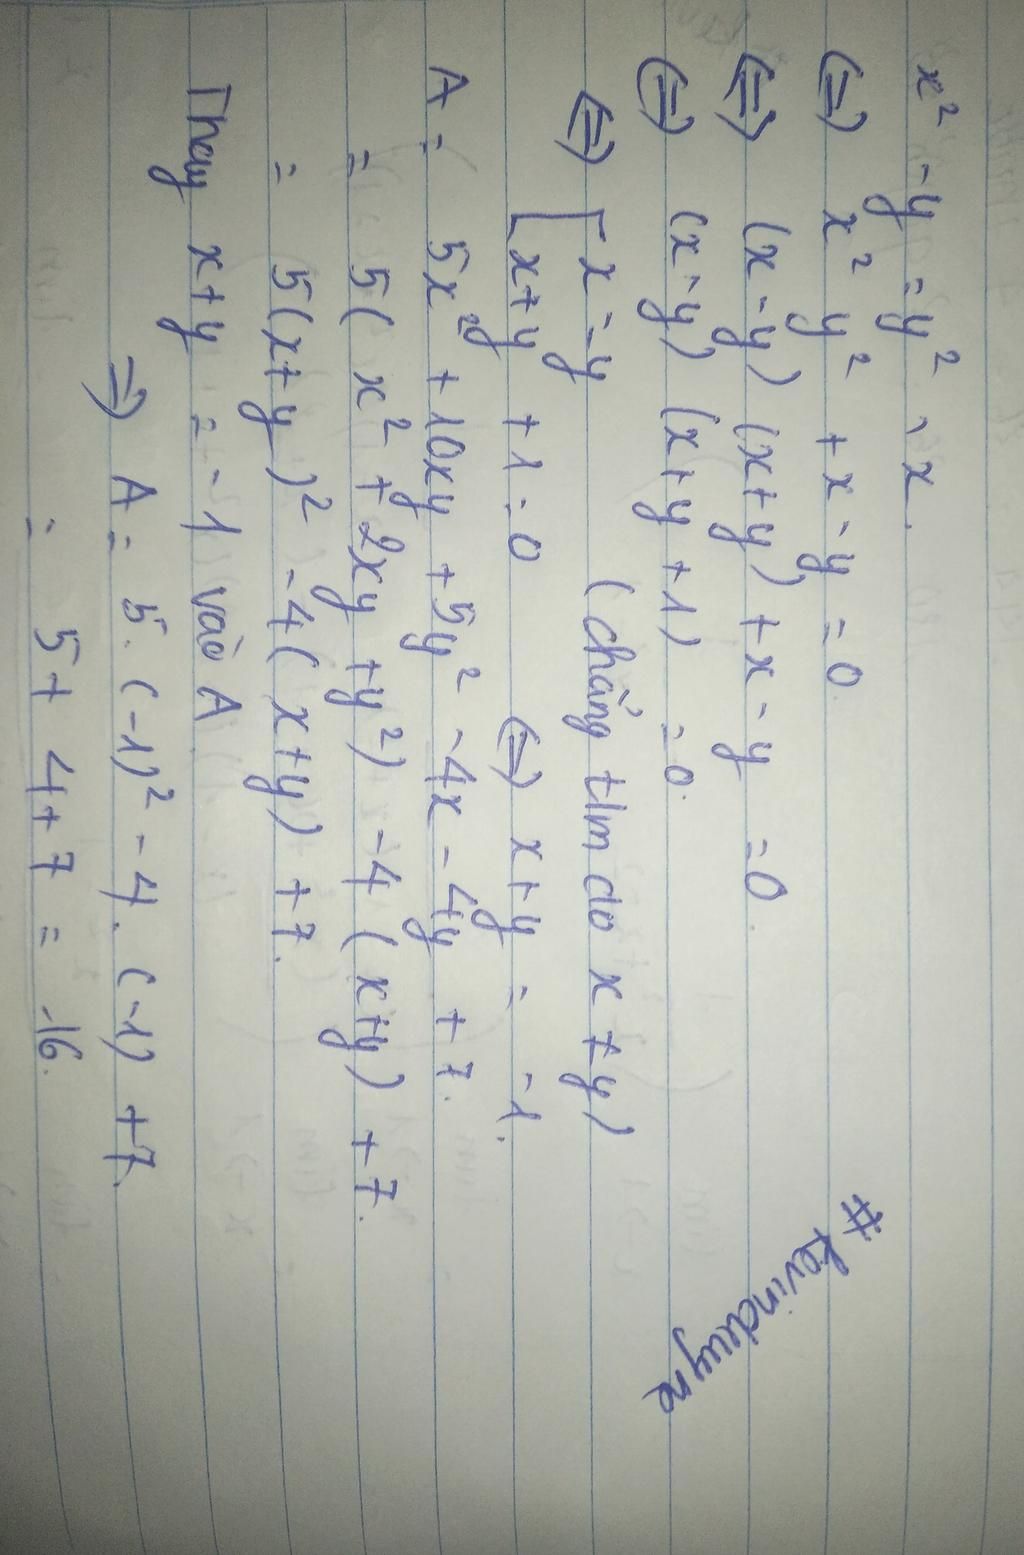 x² - y = y² - x.
(=) x² y² + x - y = 0
(=) (x - y) (x + y) + x - y = 0.
(=) (x - y) (x + y + 1) = 0.
(=) [ x = y (chẳng t/m do x ≠ y)
[ x + y + 1 = 0 (=) x + y = -1.
A = 5x² + 10xy + 5y² - 4x - 4y + 7.
= 5( x² + 2xy + y²) - 4 ( x + y) + 7.
= 5(x + y)² - 4( x + y) + 7.
Thay x + y = -1 vào A.
=> A = 5. (-1)² - 4. (-1) + 7.
= 5 + 4 + 7 = 16.